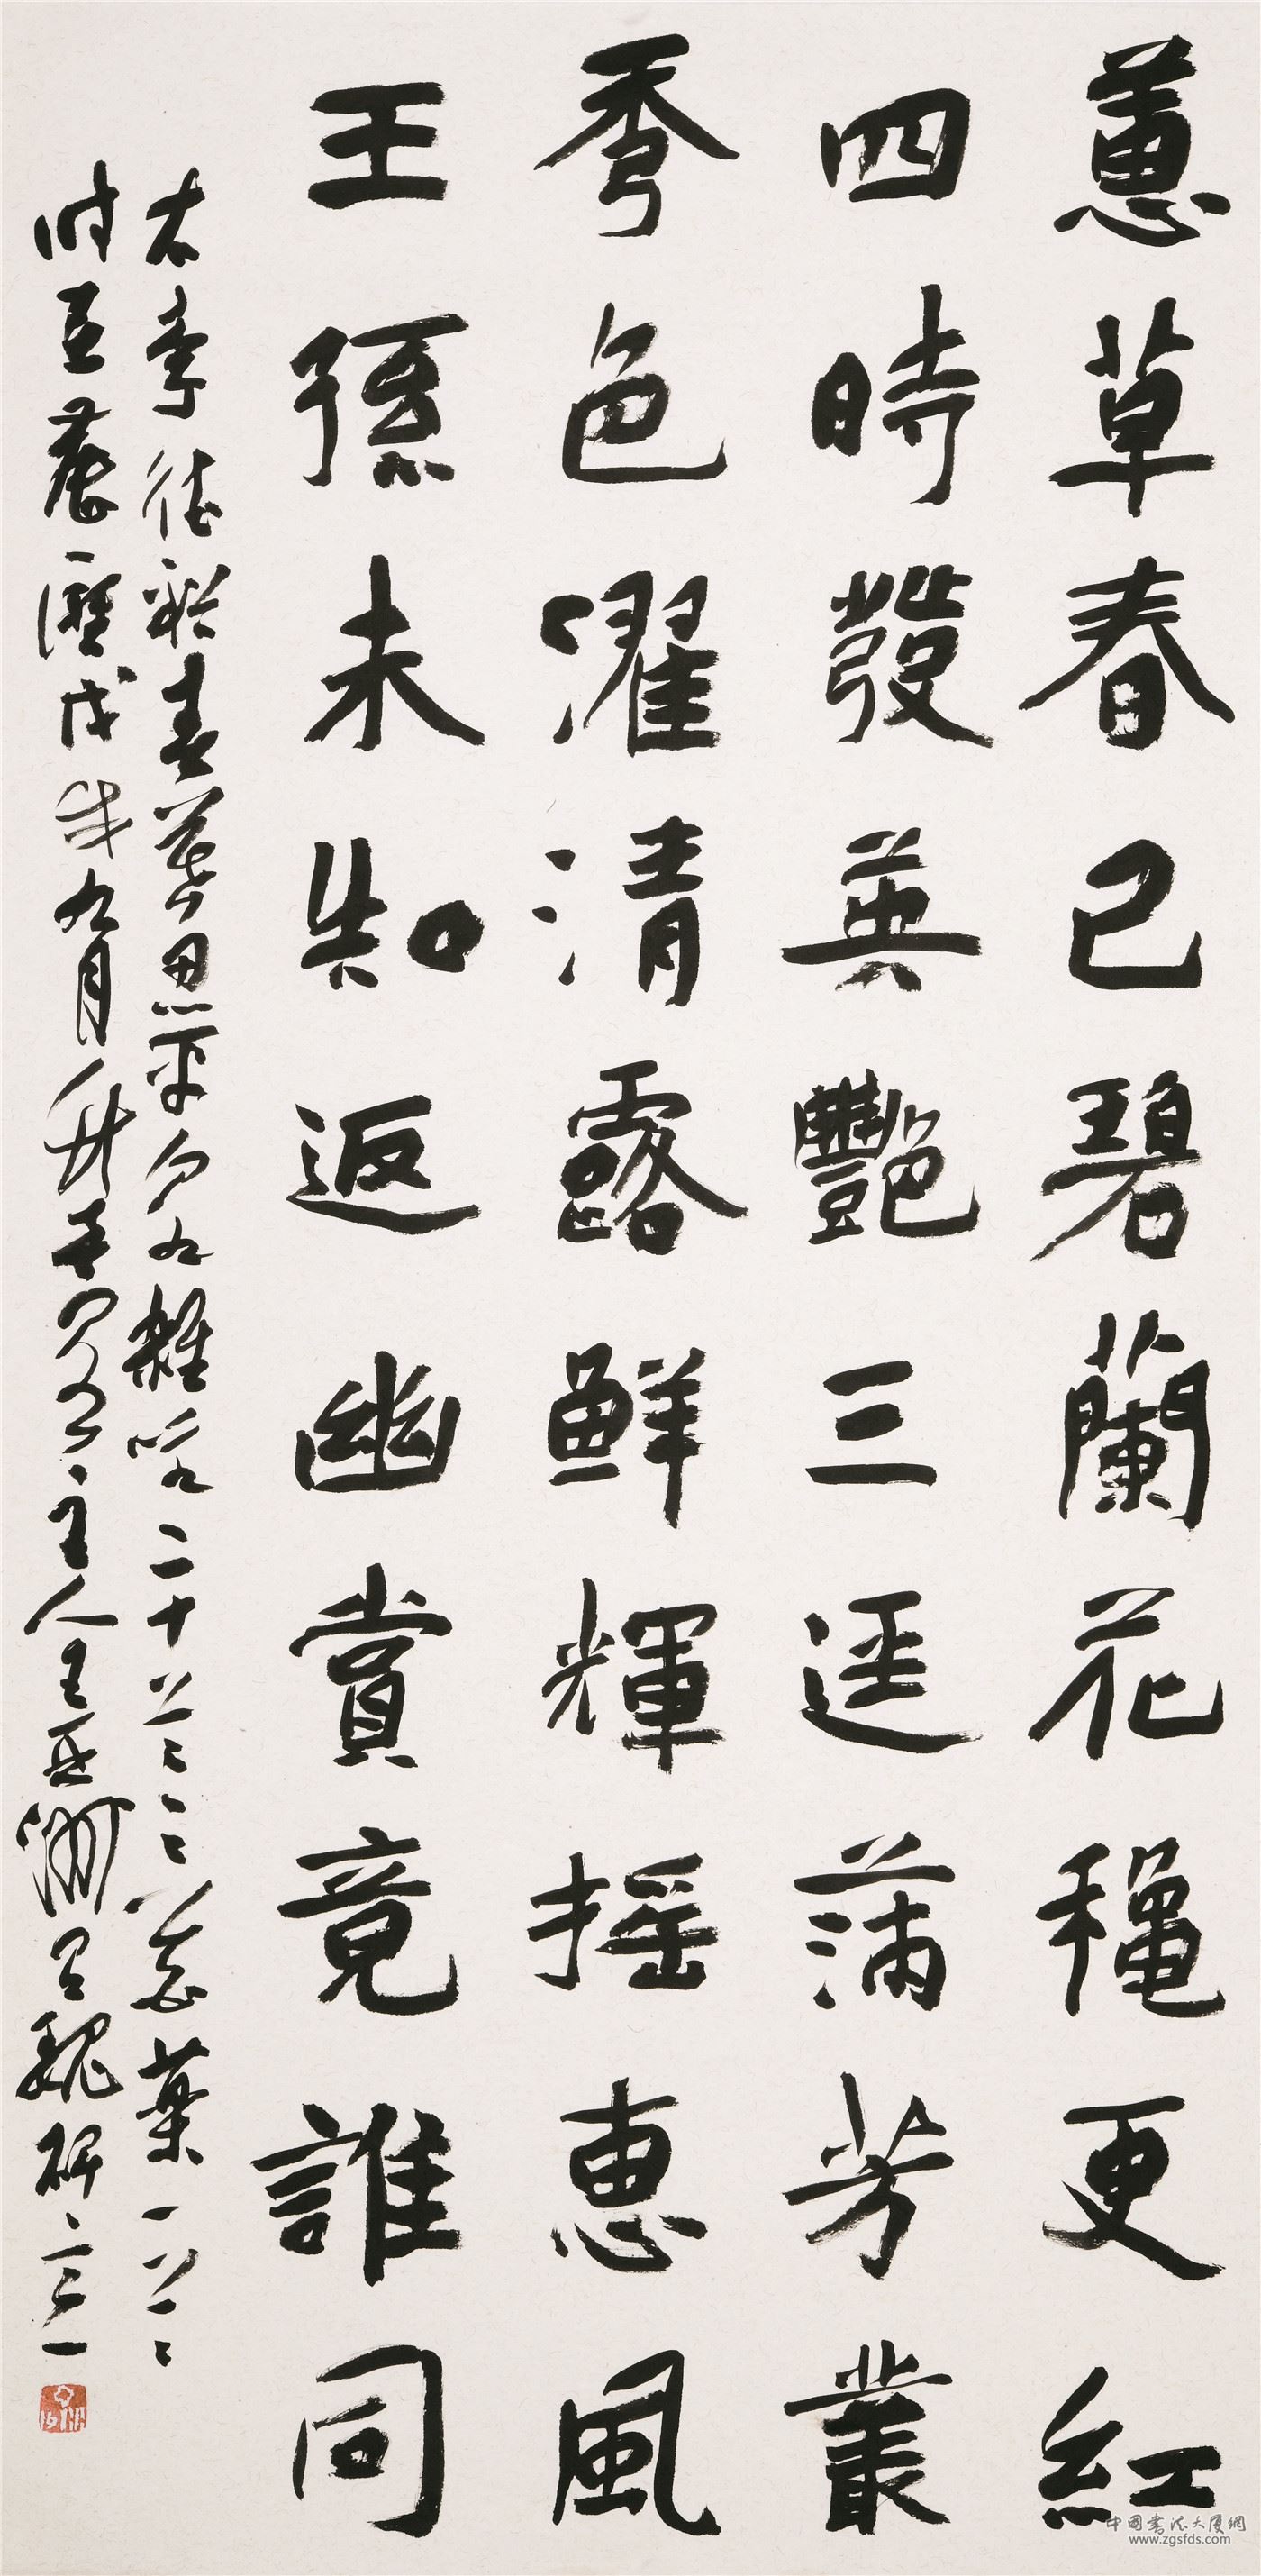 蕙草春已碧蘭花穐更紅
四時發英艷三逕满芳叢
秀色濯清露鮮輝摇惠風
王孫未知返幽賞竟誰同
右李德裕春暮思平泉雜詠二十首之一
時在農曆戊戌年九月於主人王亞洲
中國書法大廈網
www.zgsfds.com